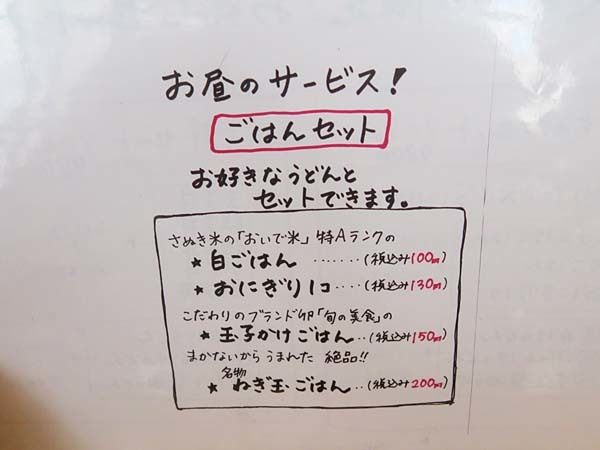 お昼のサービス!
ごはんセット
お好きなうどんと
セットできます。
さぬき米の「おいで米」特Aランクの
★白ごはん ‥‥‥(税込み100円)
★おにぎり1コ‥‥(税込み130円)
こだわりのブランド卵「旬の美食」の
★玉子かけごはん‥(税込み150円)
まかないからうまれた 絶品!!
名物
★ねぎ玉ごはん‥(税込み200円)